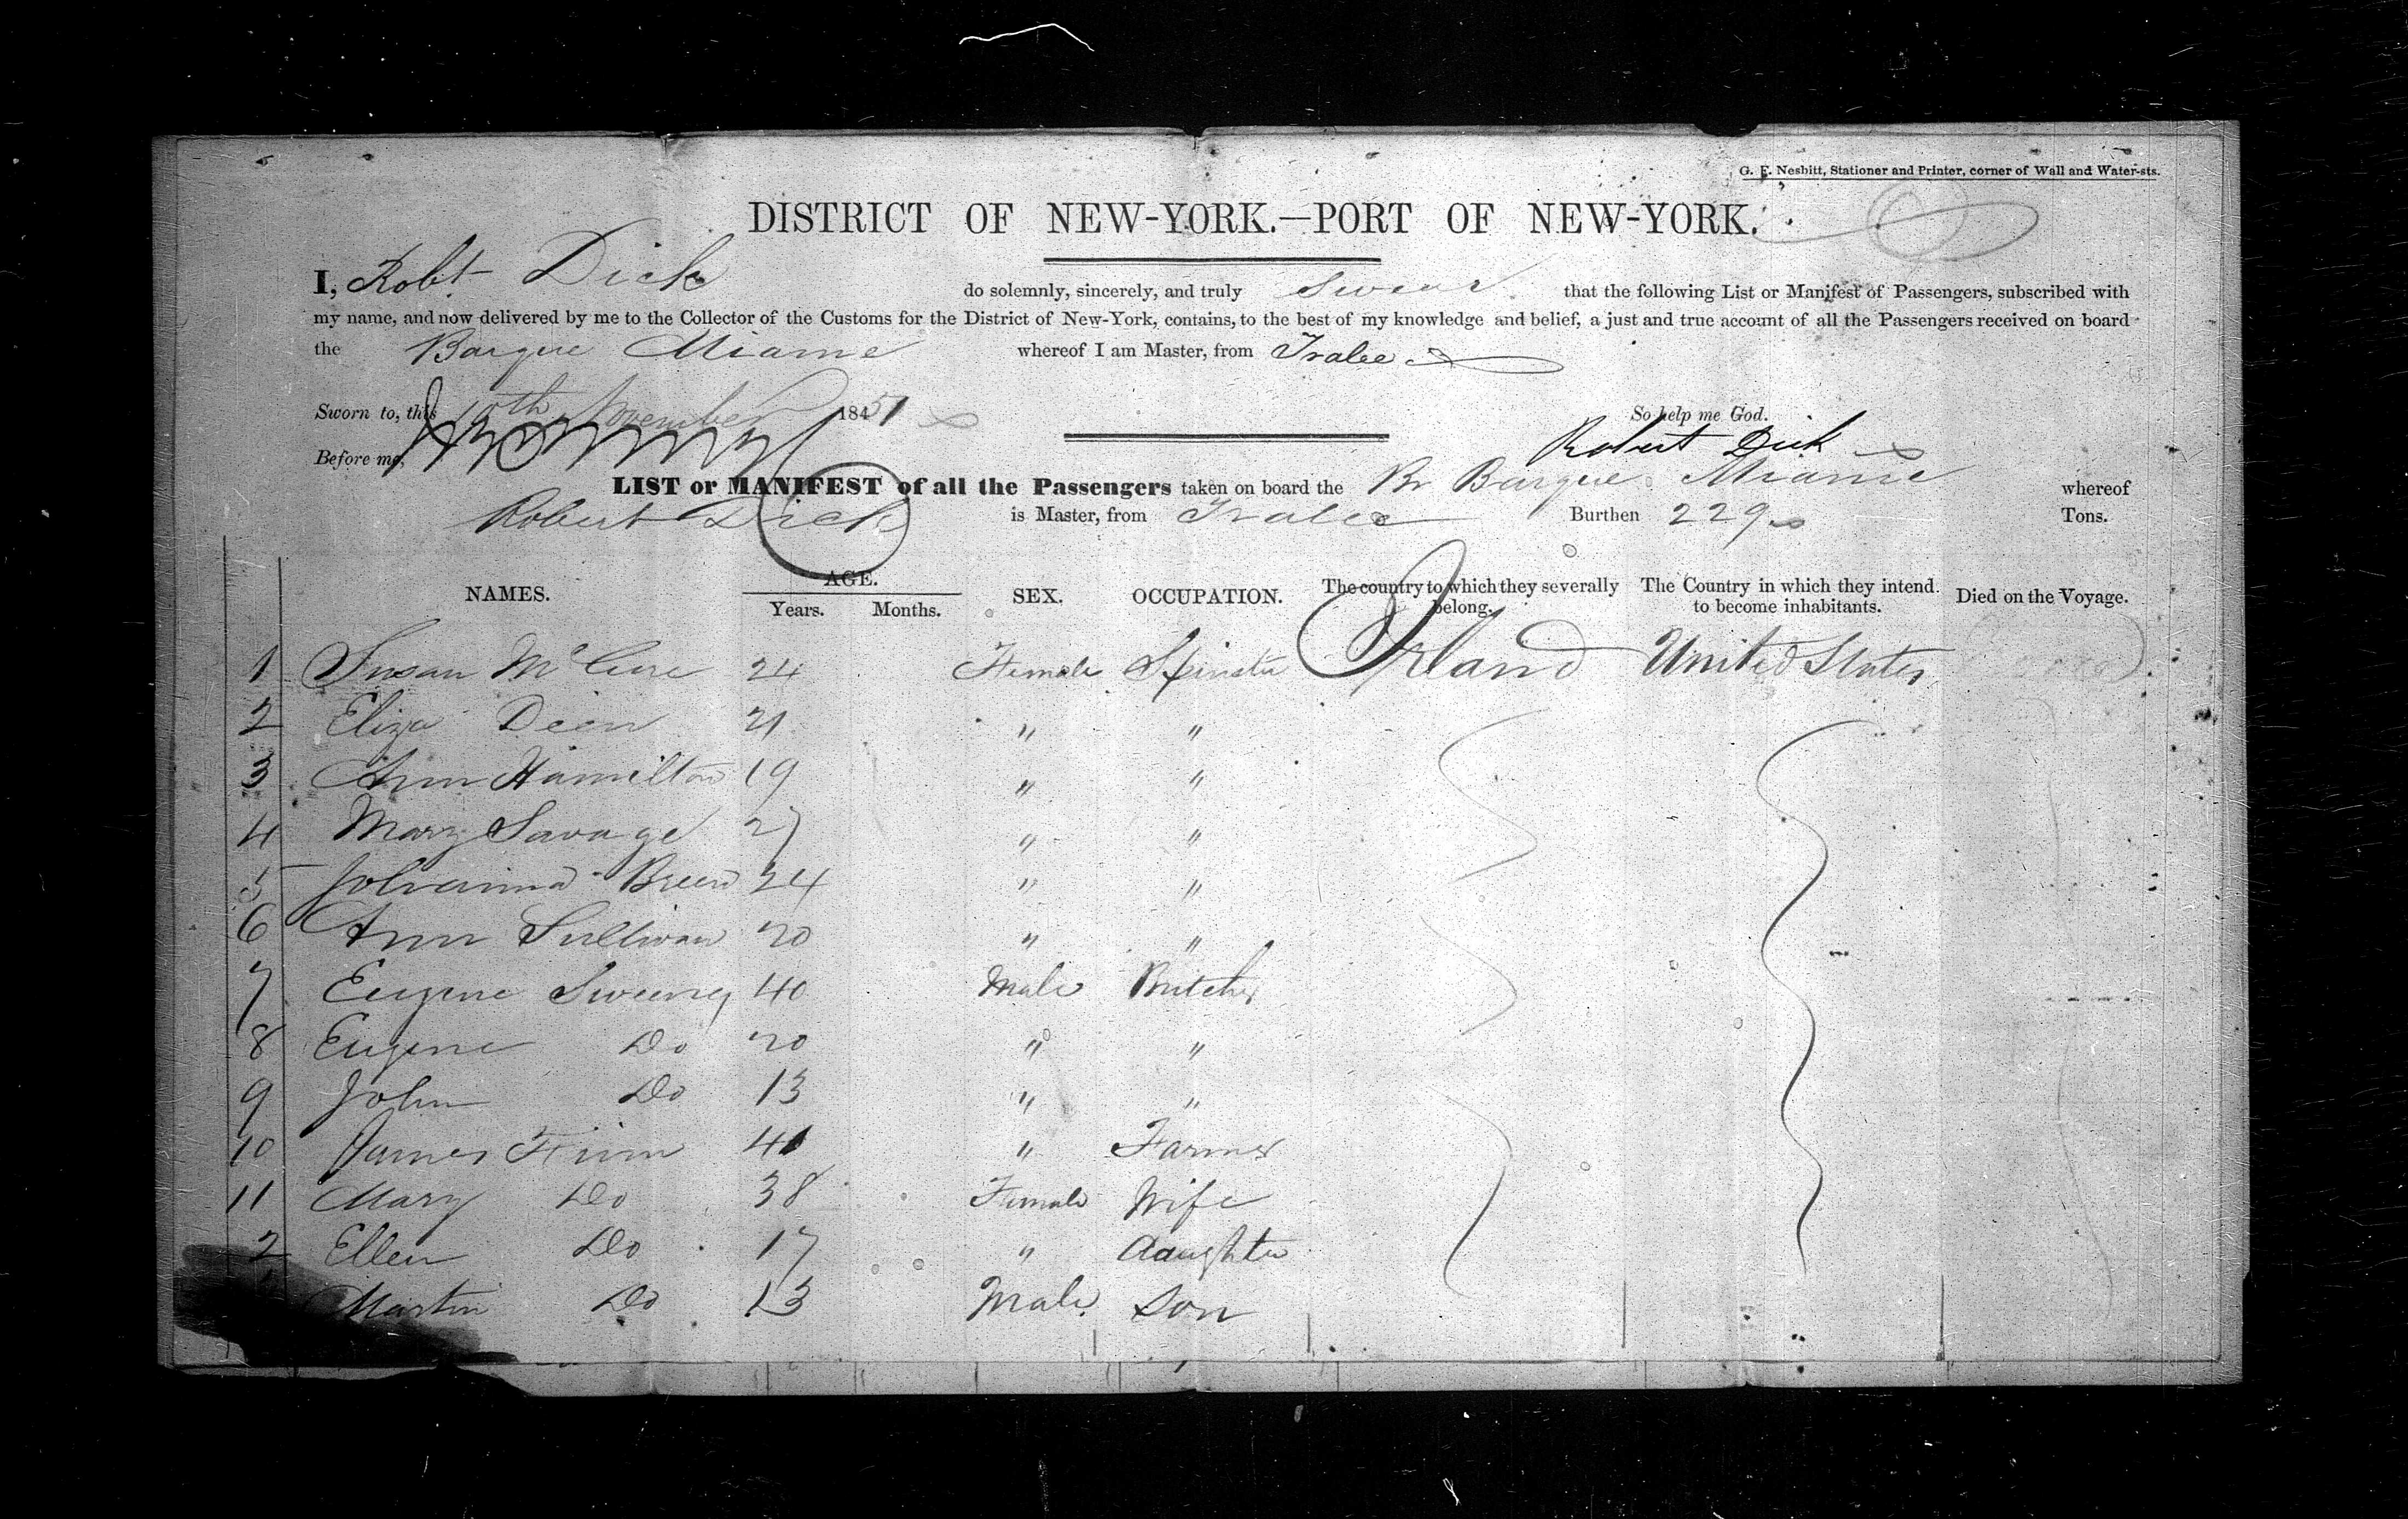 G. F. Nesbitt, Stationer and Printer, corner of Wall and Water-sts.
DISTRICT OF NEW-YORK.—PORT OF NEW-YORK.
I, Robt Dick do solemnly, sincerely, and truly Swear that the following List or Manifest of Passengers, subscribed with
my name, and now delivered by me to the Collector of the Customs for the District of New-York, contains, to the best of my knowledge and belief, a just and true account of all the Passengers received on board
the Barque Miame whereof I am Master, from Tralee
Sworn to, this 10th November 1851
So help me God.
Before me,
Robert Dick
LIST or MANIFEST of all the Passengers taken on board the Br Barque Miame whereof
Robert Dick is Master, from Tralee Burthen 229 Tons.
NAMES. AGE. Years. Months. SEX. OCCUPATION. The country to which they severally belong. The Country in which they intend to become inhabitants. Died on the Voyage.
1 Susan 24 Female Spinster Irland United States
2 Eliza Deen 21 " "
3 Ann Hamilton 19 " "
4 Mary Savage 27 " "
5 Johanna Breen 24 " "
6 Ann Sullivan 20 " "
7 Eugene Sweeney 40 Male Butcher
8 Eugene Do 20 " "
9 John Do 13 " "
10 James Finn 41 " Farmer
11 Mary Do 38 Female Wife
2 Ellen Do 17 " daughter
Martin Do 13 Male Son